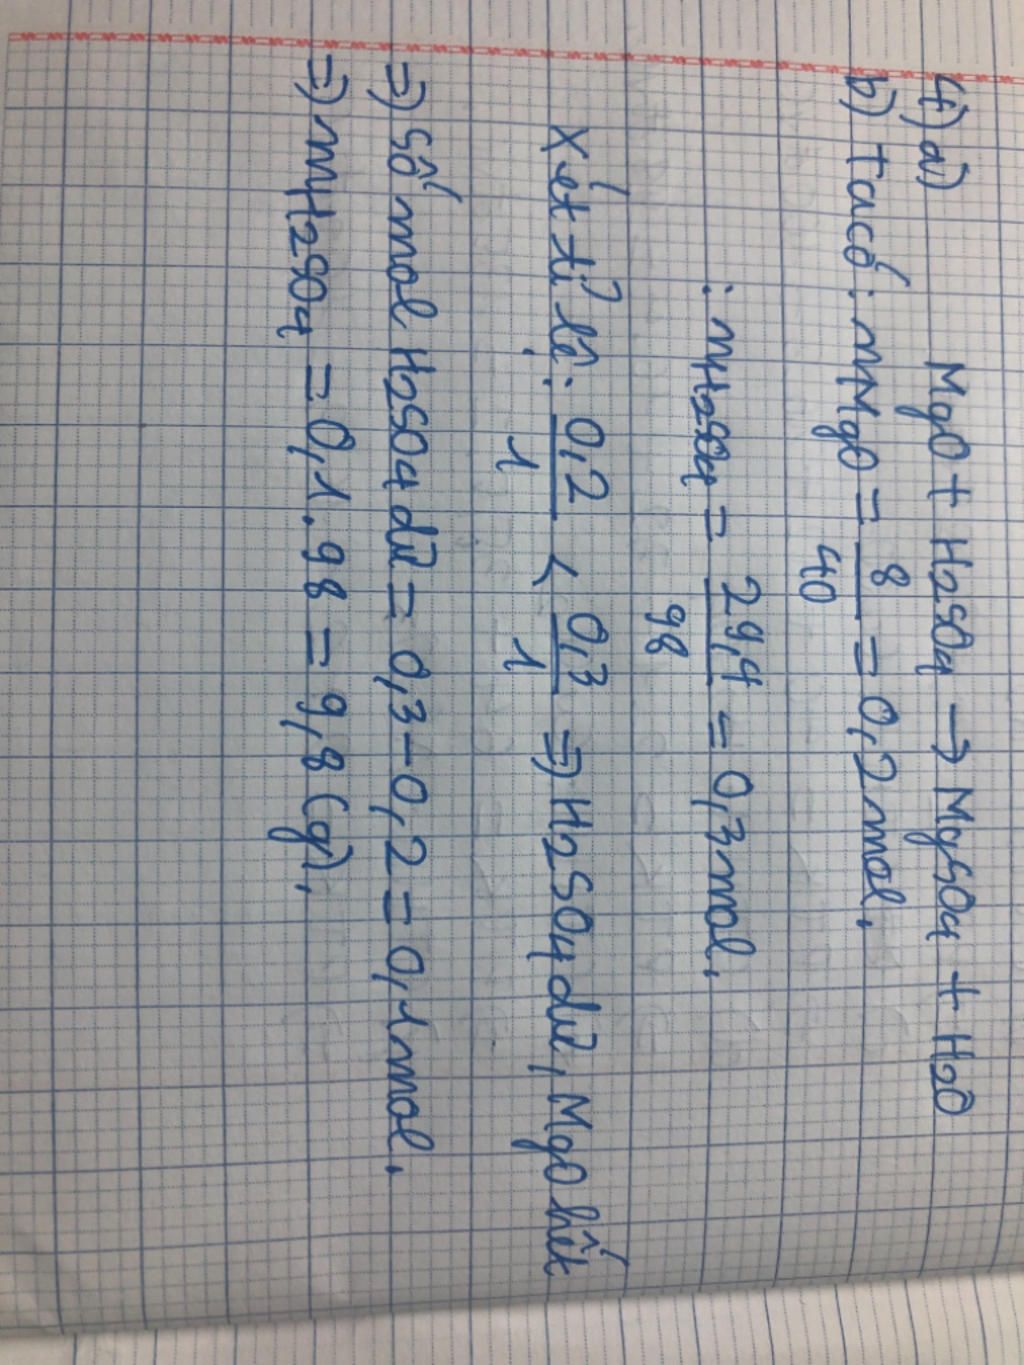 4) a) MgO + H2SO4 → MgSO4 + H2O
b) Ta có: nMgO = 8/40 = 0,2 mol.
: nH2SO4 = 29,4/98 = 0,3 mol.
Xét tỉ lệ: 0,2/1 < 0,3/1 ⇒ H2SO4 dư, MgO hết
⇒ số mol H2SO4 dư = 0,3 - 0,2 = 0,1 mol.
⇒ mH2SO4 = 0,1 . 98 = 9,8 (g).